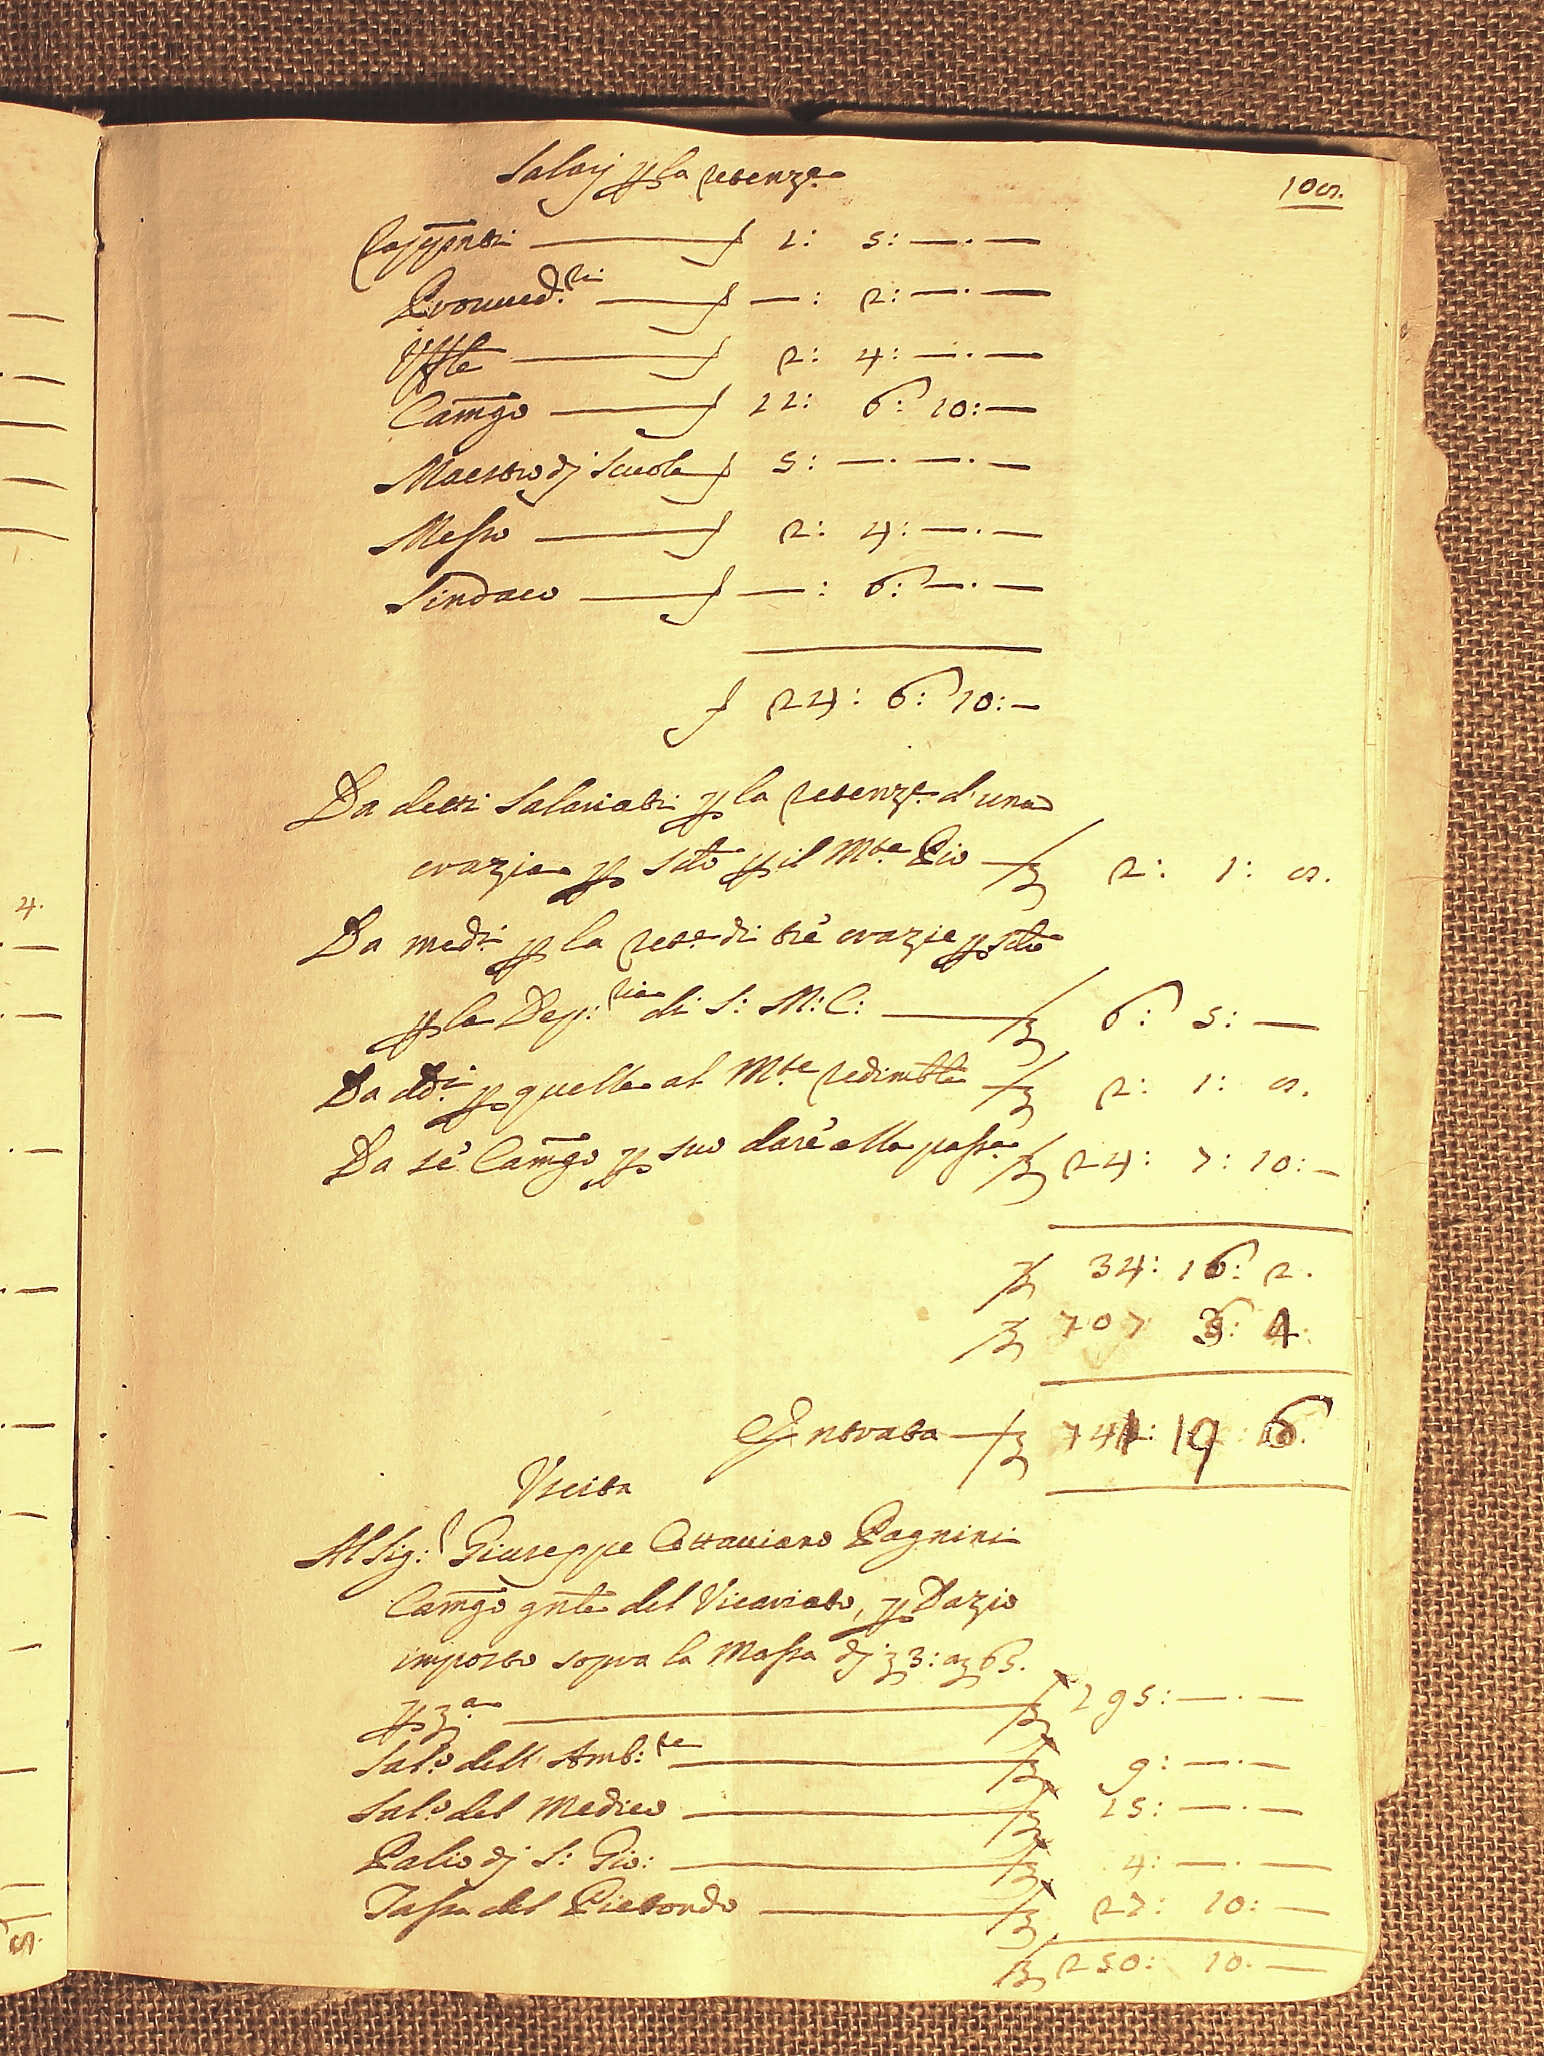 Salarj p la retenz.e
105.
Rappnti f 1: 5: — · —
Provved.ri f — : 2: — · —
Uffle f 2: 4: — · —
Camgo f 12: 6: 10: —
Maestro dj Scuola f 5: — · — · —
Messo f 2: 4: — · —
Sindaco f — : 6: — · —
f 24: 6: 10: —
Da detti Salariati p la retenz.e d'una
crazia p scto p il Mte Pio 2: 1: 5.
Da medi p la rete di tre crazie p scto
p la Dep:ria di S: M: C: 6: 5: —
Da ddi p quella al Mte redimble 2: 1: 5.
Da se Camgo p suo dare alla passa 24: 7: 10: —
34: 16: 2.
707 3: 4
Entrata 741: 19: 6.
Uscita
Al Sig:r Giuseppe Ottaviano Pagnini
Camgo gnle del Vicariato, p Dazio
imposto sopra la Massa dj 3: 65.
195: — · —
Sal.o dell' Amb:re 9: — · —
Sal.o del Medico 15: — · —
Palio dj S: Gio: 4: — · —
Tassa del Pietondo 27: 10: —
250: 10. —
4.
5.